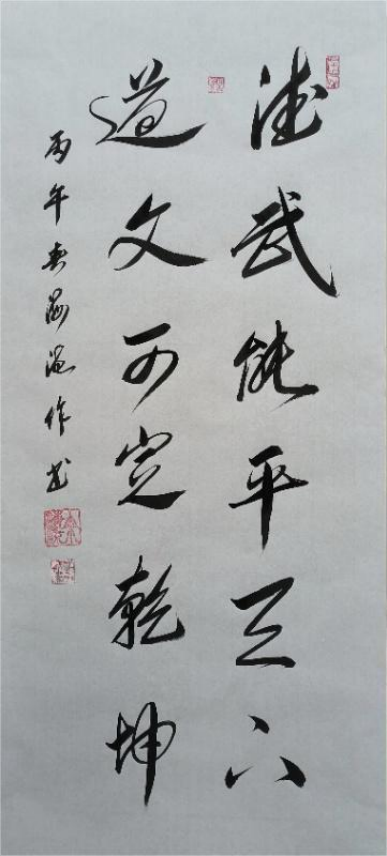 德武能平天下
道文可定乾坤
丙午春海滬作书